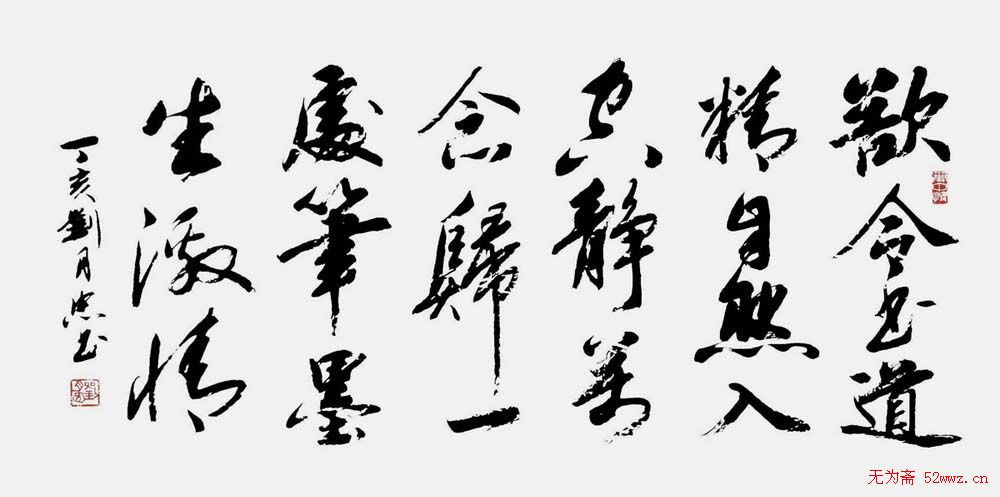 欲令書道
精自然入
空靜萬
念歸一
處筆墨
生激情
丁亥劉月忠書
无为斋 52wwz.cn